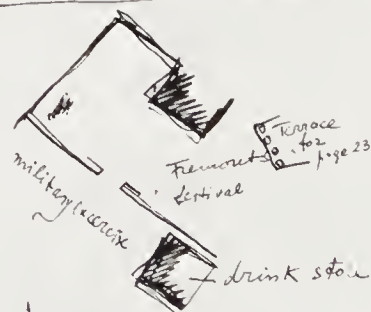 Terrace
for
page 23
Fremont
festival
military exercise
drink stou